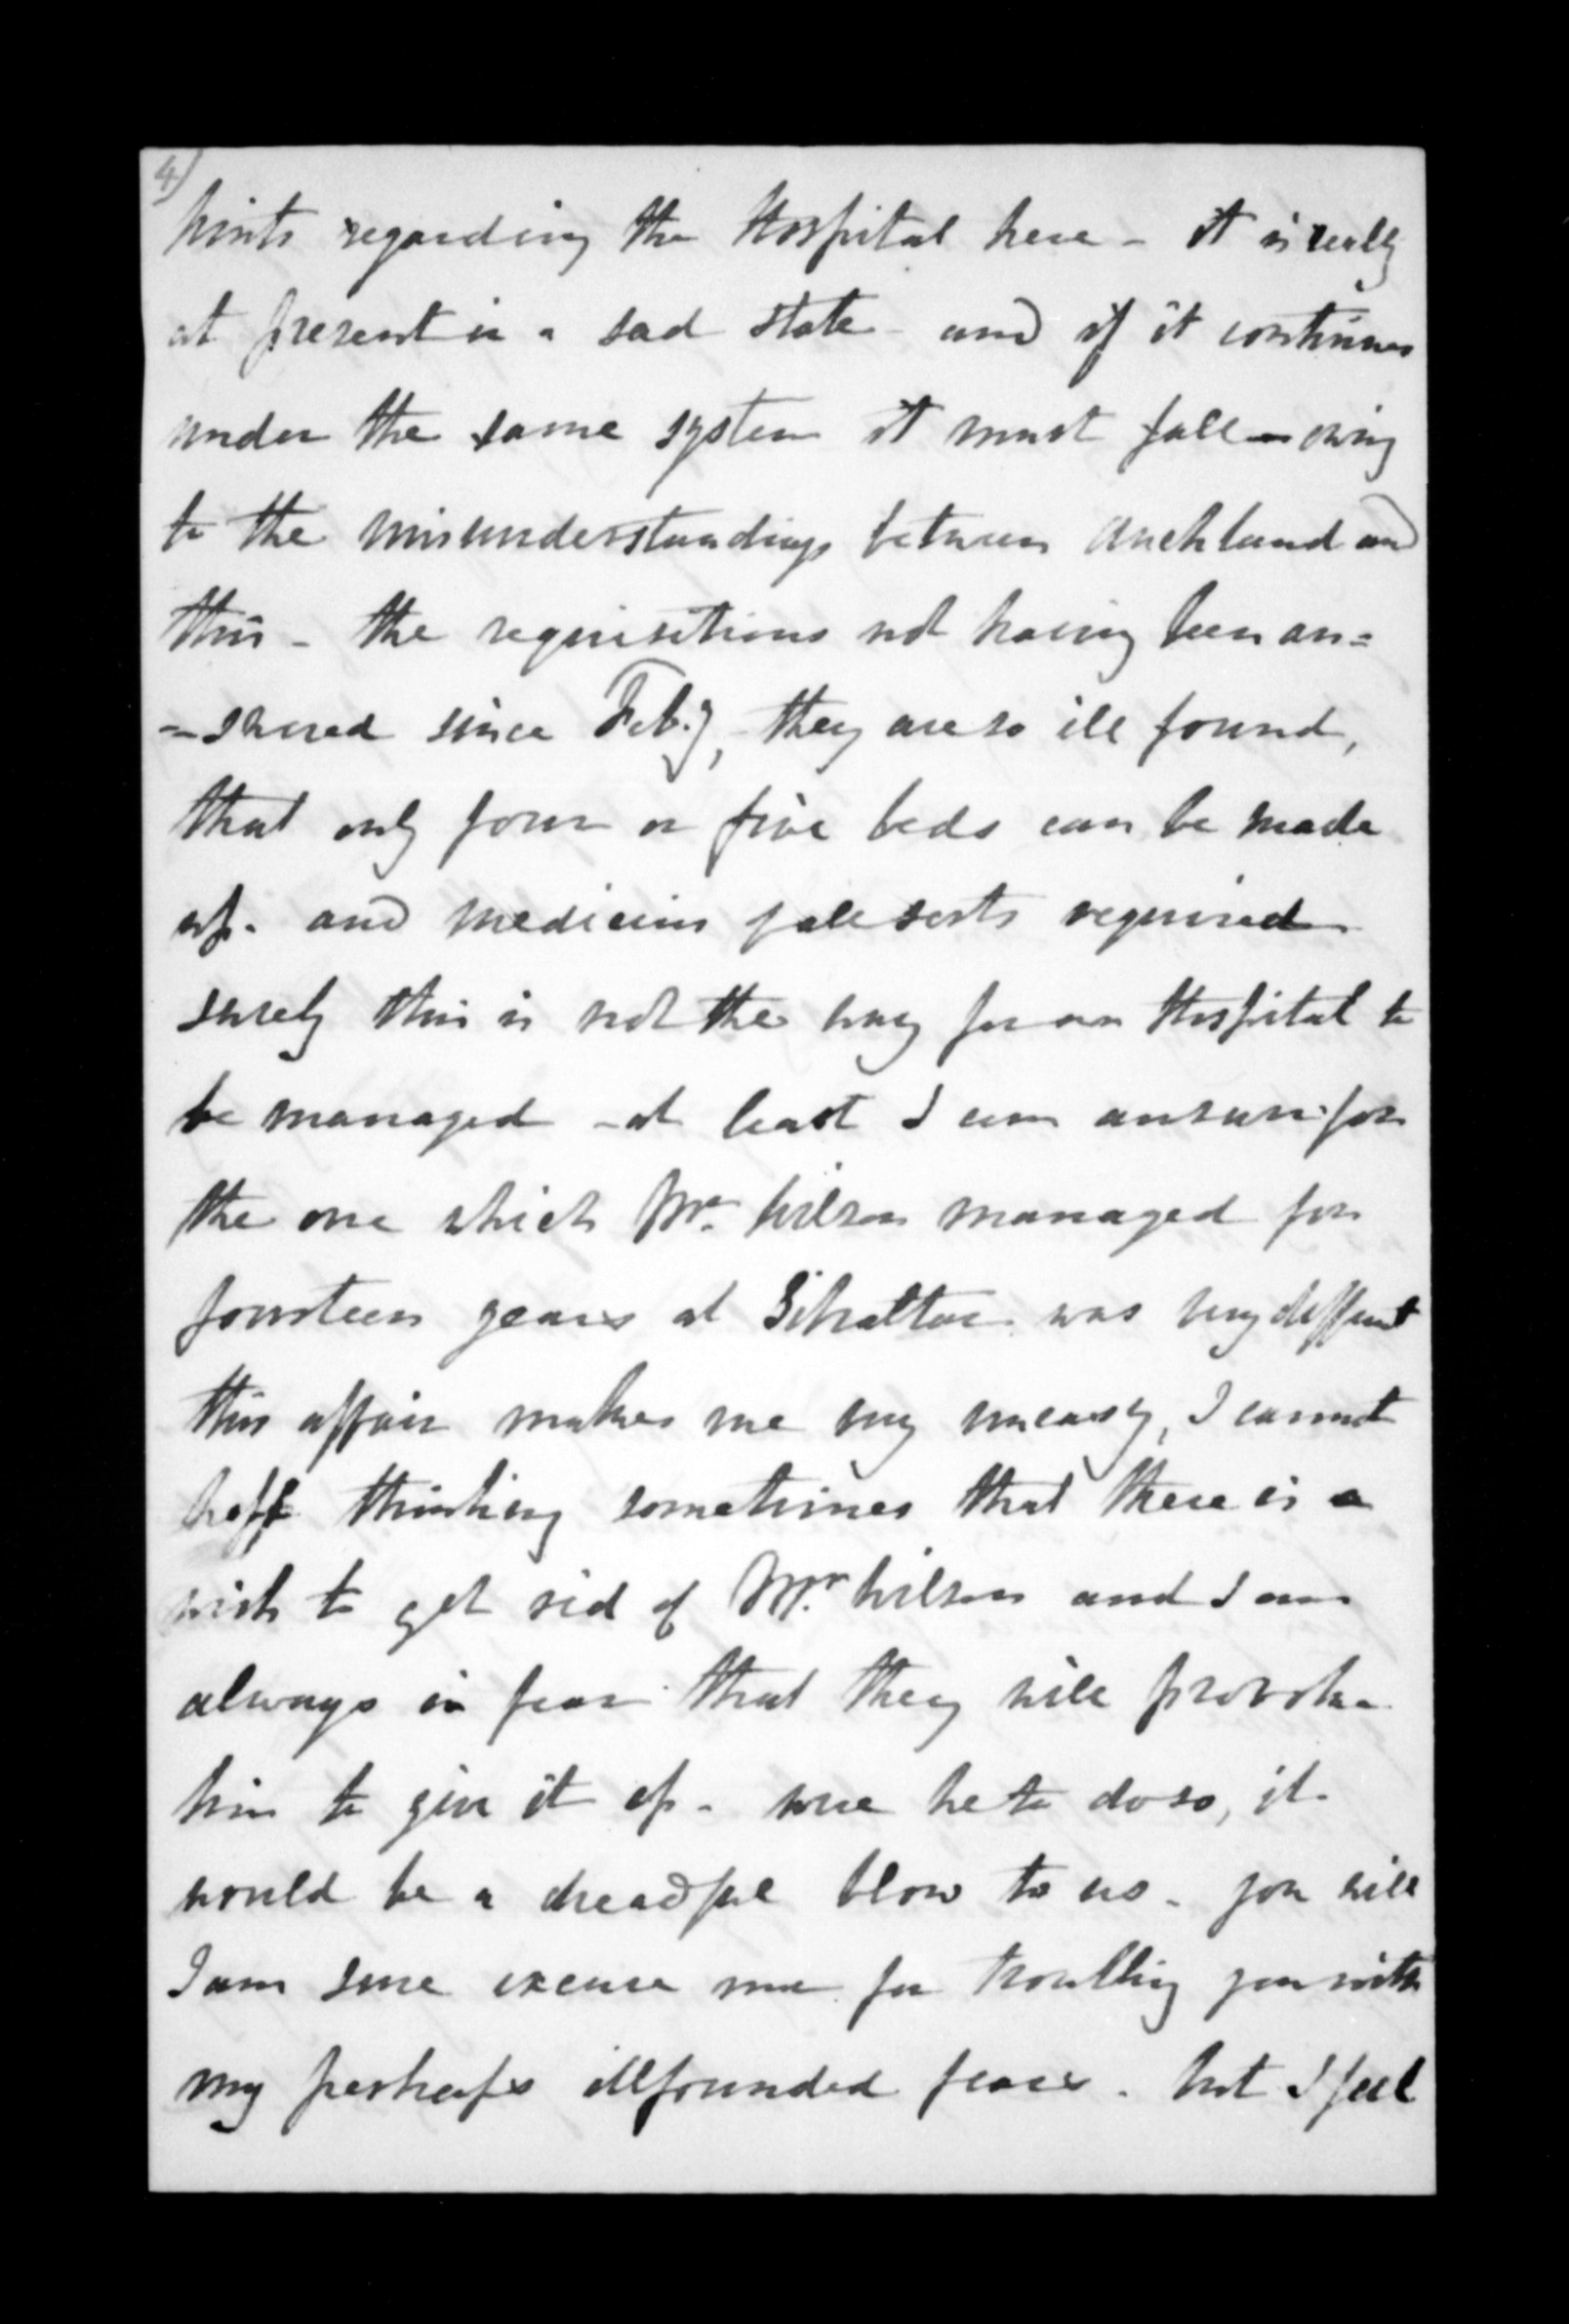 4)
hints regarding the Hospital here - it is really
at present in a sad state - and if it continues
under the same system it must fall - owing
to the misunderstandings between Auckland and
this - the requisitions not having been an=
=swered since Feby, they are so ill found,
that only four or five beds can be made
up. and medicins of all sorts required
surely this is not the way for an Hospital to
be managed - at least I am ansure for
the one which Mr. Wilson managed for
fourteen years at Gibraltar was very different
this affair makes me very uneasy, I cannot
help thinking sometimes that there is a
wish to get rid of Mr. Wilson and I am
always in fear that they will provoke
him to give it up - were he to do so, it
would be a dreadful blow to us - you will
I am sure excuse me for troubling you with
my perhaps illfounded fears. but I feel